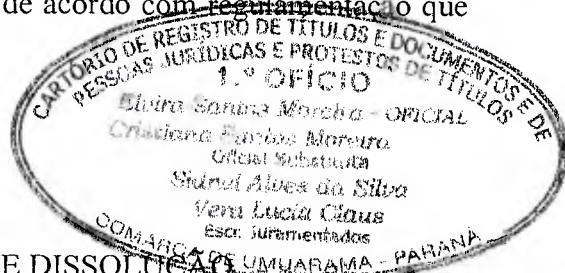 de acordo com regulamentação que
CARTÓRIO DE REGISTRO DE TÍTULOS E DOCUMENTOS E DE
PESSOAS JURÍDICAS E PROTESTOS DE TÍTULOS
1.º OFÍCIO
Elvira Santina Moreira - OFICIAL
Cristiana Moreira
Oficial Substituta
Sidnei Alves da Silva
Vera Lucia Claus
Escr. Juramentados
COMARCA DE UMUARAMA - PARANÁ
E DISSOLUÇÃO